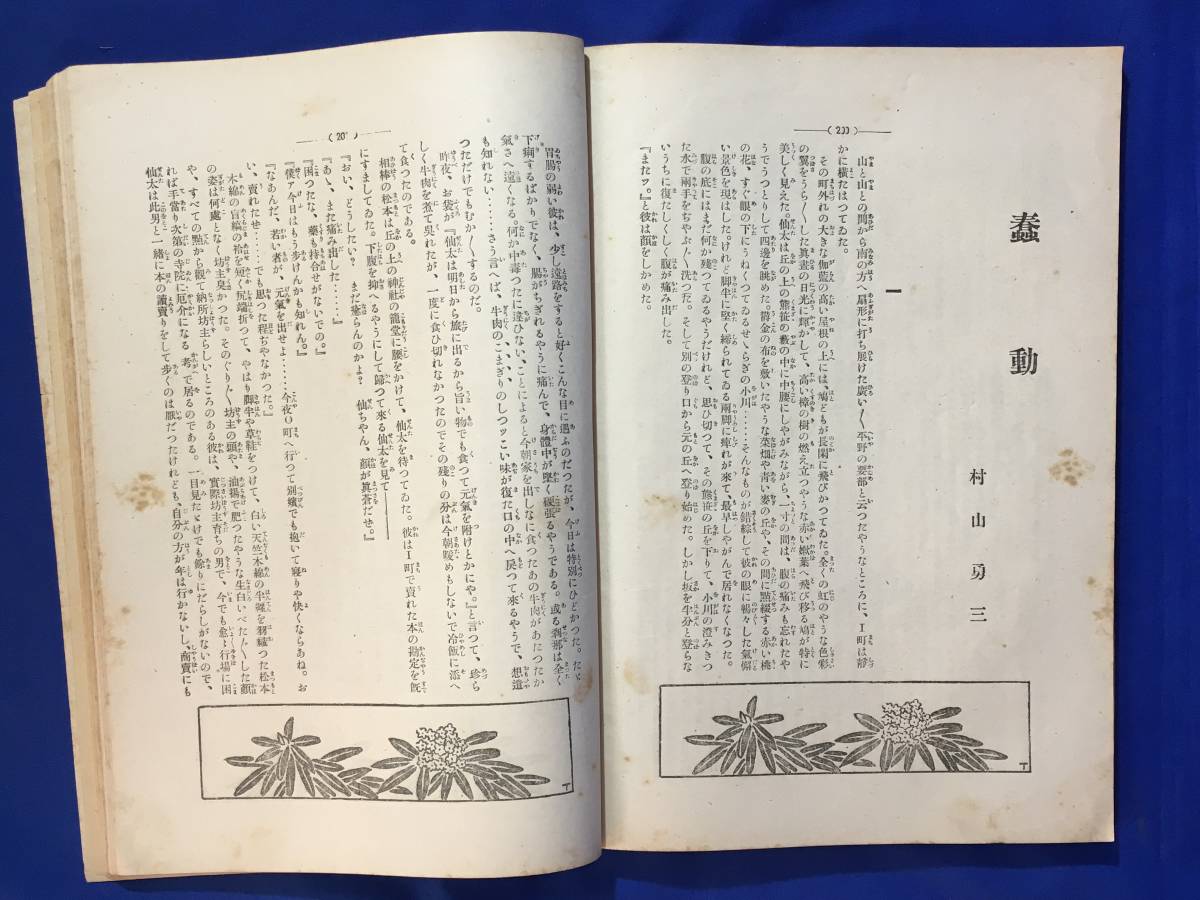 (200)
蠢動
村山勇三
一
山と山との間から南の方へ扇形に打ち展けた廣い〱平野の要部と云つたやうなところに、I町は靜
かに横たはつてゐた。
その町外れの大きな伽藍の高い屋根の上には、鳩どもが長閑に飛びかつてゐた。全くの虹のやうな色彩
の翼をうら〱した眞晝の日光に輝かして、高い樟の樹の燃え立つやうな赤い嫩葉へ飛び移る鳩が特に
美しく見えた。仙太は丘の上の熊笹の藪の中に中腰にしやがみながら、一寸の間は、腹の痛みも忘れたや
うでうつとりして四邊を眺めた。欝金の布を敷いたやうな菜畑や青い麥の丘や、その間に點綴する赤い桃
の花、すぐ眼の下にうねくつてゐるせゝらぎの小川‥‥‥そんなものが錯綜して彼の眼に暢々した氣懈
い景色を現はした。けれど脚半に堅く締られてゐる兩脚に痺れが來て、最早しやがんで居れなくなつた。
腹の底にはまだ何か殘つてゐるやうだけれど、思ひ切つて、その熊笹の丘を下りて、小川の澄みきつ
た水で兩手をぢやぶ〱洗つた。そして別の登り口から元の丘へ登り始めた。しかし坂を半分と登らな
いうちに復たしく〱腹が痛み出した。
『またッ。』と彼は顏をしかめた。
胃腸の弱い彼は、少し遠路をすると好くこんな目に遇ふのだつたが、今日は特別にひどかつた。たゞ
下痢するばかりでなく、腸がちぎれるやうに痛んで、身體中が堅く硬張るやうである。或る刹那は全く
氣さへ遠くなる。何か中毒つたに違ひない、ことによると今朝家を出しなに食つたあの牛肉があたつたか
も知れない‥‥‥さう言へば、牛肉のこまぎりのしつッこい味が復た口の中へ戻つて來るやうで、想遣
つただけでもむか〱するのだ。
昨夜、お袋が『仙太は明日から旅に出るから旨い物でも食つて元氣を附けとかにや。』と言つて、珍ら
しく牛肉を煮て呉れたが、一度に食ひ切れなかつたのでその殘りの分は今朝暖めもしないで冷飯に添へ
て食つたのである。
相棒の松本は丘の上の神社の籠堂に腰をかけて、仙太を待つてゐた。彼はI町で賣れた本の勘定を既
にすましてゐた。下腹を抑へるやうにして歸つて來る仙太を見て――
『おい、どうしたい？　まだ癒らんのかよ？　仙ちやん、顏が眞蒼だぜ。』
『あゝ、また痛み出した‥‥‥』
『困つたな、藥も持合せがないでの。』
『僕ア今日はもう歩けんかも知れん。』
『なあんだ、若い者が、元氣を出せよ‥‥‥今夜O町へ行つて別嬪でも抱いて寢りや快くならあね。お
い、賣れたせ‥‥‥でも思つた程ぢやなかつた。』
木綿の盲縞の袷を短く尻端折つて、やはり脚半や草鞋をつけて、白い天竺木綿の半纒を羽織つた松本
の姿は何處となく坊主臭かつた。そのぐり〱坊主の頭や、油揚で肥つたやうな生白いべた〱した顏
や、すべての點から觀て納所坊主らしいところのある彼は、實際坊主育ちの男で、今でも愈々行場に困
れば手當り次第の寺院に厄介になる考で居るのである。一目見たゞけでも餘りにだらしがないので、
仙太は此男と一緒に本の讀賣りをして歩くのは厭だつたけれども、自分の方が年は行かないし、商賣にも